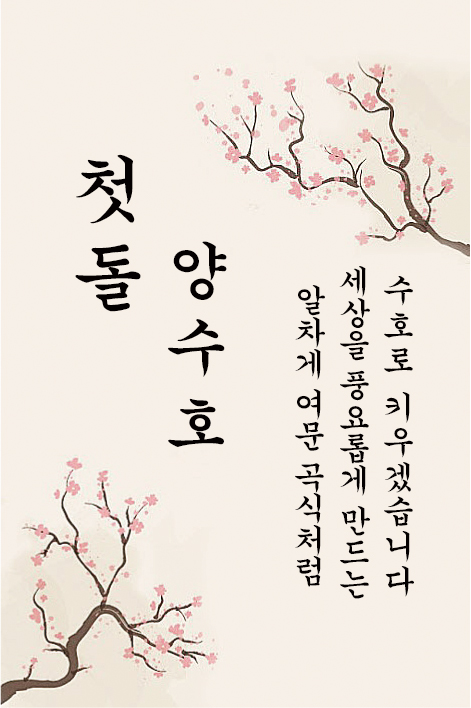 첫돌
양수호
알차게 여문 곡식처럼
세상을 풍요롭게 만드는
수호로 키우겠습니다